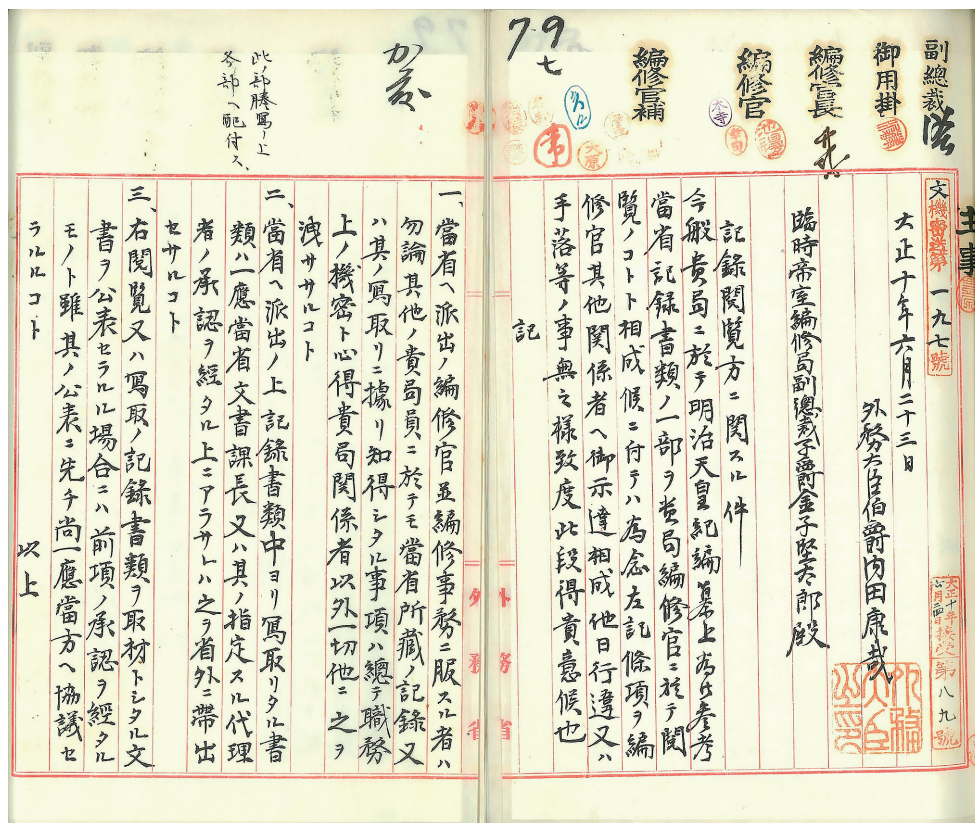 副總裁
御用掛
編修官長
編修官
編修官補
主事
7.9
七
文機密送第一九七號
大正十年六月二十三日
外務大臣伯爵內田康哉
外務大臣之印
第八九號
臨時帝室編修局副總裁子爵金子堅太郎殿
記録閱覽方ニ関スル件
今般貴局ニ於テ明治天皇紀編纂上為御参考
當省記録書類ノ一部ヲ貴局編修官ニ於テ閱
覽ノコトト相成候ニ付テハ為念左記條項ヲ編
修官其他関係者ヘ御示達相成他日行違又ハ
手落等ノ事無之様致度此段得貴意候也
記
此ノ部謄寫ノ上
各部ヘ配付ス、
一、當省ヘ派出ノ編修官並編修事務ニ服スル者ハ
勿論其他ノ貴局員ニ於テモ當省所藏ノ記録又
ハ其ノ寫取リニ據リ知得シタル事項ハ總テ職務
上ノ機密ト心得貴局関係者以外一切他ニ之ヲ
洩サササルコト
二、當省ヘ派出ノ上記録書類中ヨリ寫取リタル書
類ハ一應當省文書課長又ハ其ノ指定スル代理
者ノ承認ヲ經タル上ニアラサレハ之ヲ省外ニ帶出
セサルコト
三、右閱覽又ハ寫取ノ記録書類ヲ取材トシタル文
書ヲ公表セラルル場合ニハ前項ノ承認ヲ經タル
モノト雖其ノ公表ニ先チ尚一應當方ヘ協議セ
ラルルコト
以上
外務省